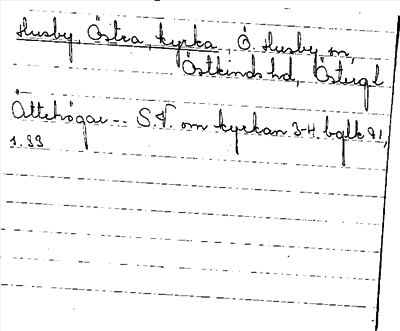 Husby, Östra, kyrka, Ö. Husby sn,
Östkinds hd, Östergl
Ättehögar -- S.V. om kyrkan 3-4. bqlk 91,
1.99